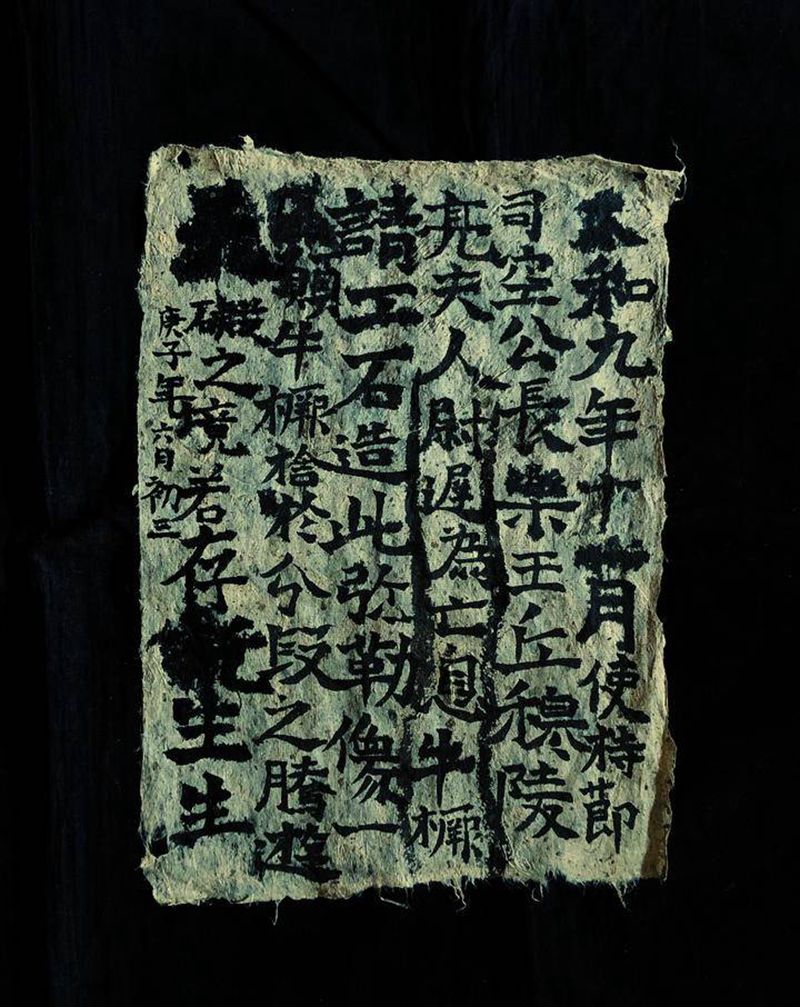 太和九年十一月使持節
司空公長樂王丘穆陵
亮夫人尉遲為亡息牛橛
請工石造此弥勒像一
願牛橛捨於分段之騰遊
礙之境若存生生
庚子年六月初三